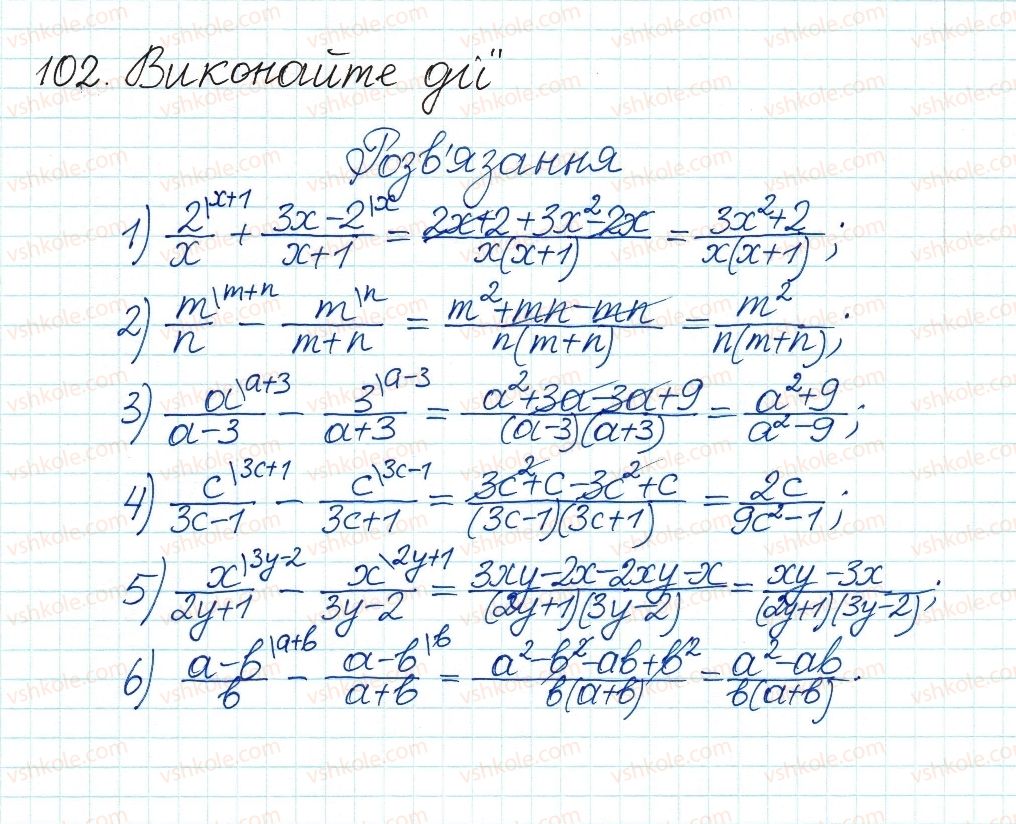 102. Виконайте дії
Розв'язання
1) 2\x+1 / x + 3x-2\x / x+1 = 2x+2+3x²-2x / x(x+1) = 3x²+2 / x(x+1);
2) m\m+n / n - m\n / m+n = m²+mn-mn / n(m+n) = m² / n(m+n);
3) a\a+3 / a-3 - 3\a-3 / a+3 = a²+3a-3a+9 / (a-3)(a+3) = a²+9 / a²-9;
4) c\3c+1 / 3c-1 - c\3c-1 / 3c+1 = 3c²+c-3c²+c / (3c-1)(3c+1) = 2c / 9c²-1;
5) x\3y-2 / 2y+1 - x\2y+1 / 3y-2 = 3xy-2x-2xy-x / (2y+1)(3y-2) = xy-3x / (2y+1)(3y-2);
6) a-b\a+b / b - a-b\b / a+b = a²-b²-ab+b² / b(a+b) = a²-ab / b(a+b).
vshkole.com